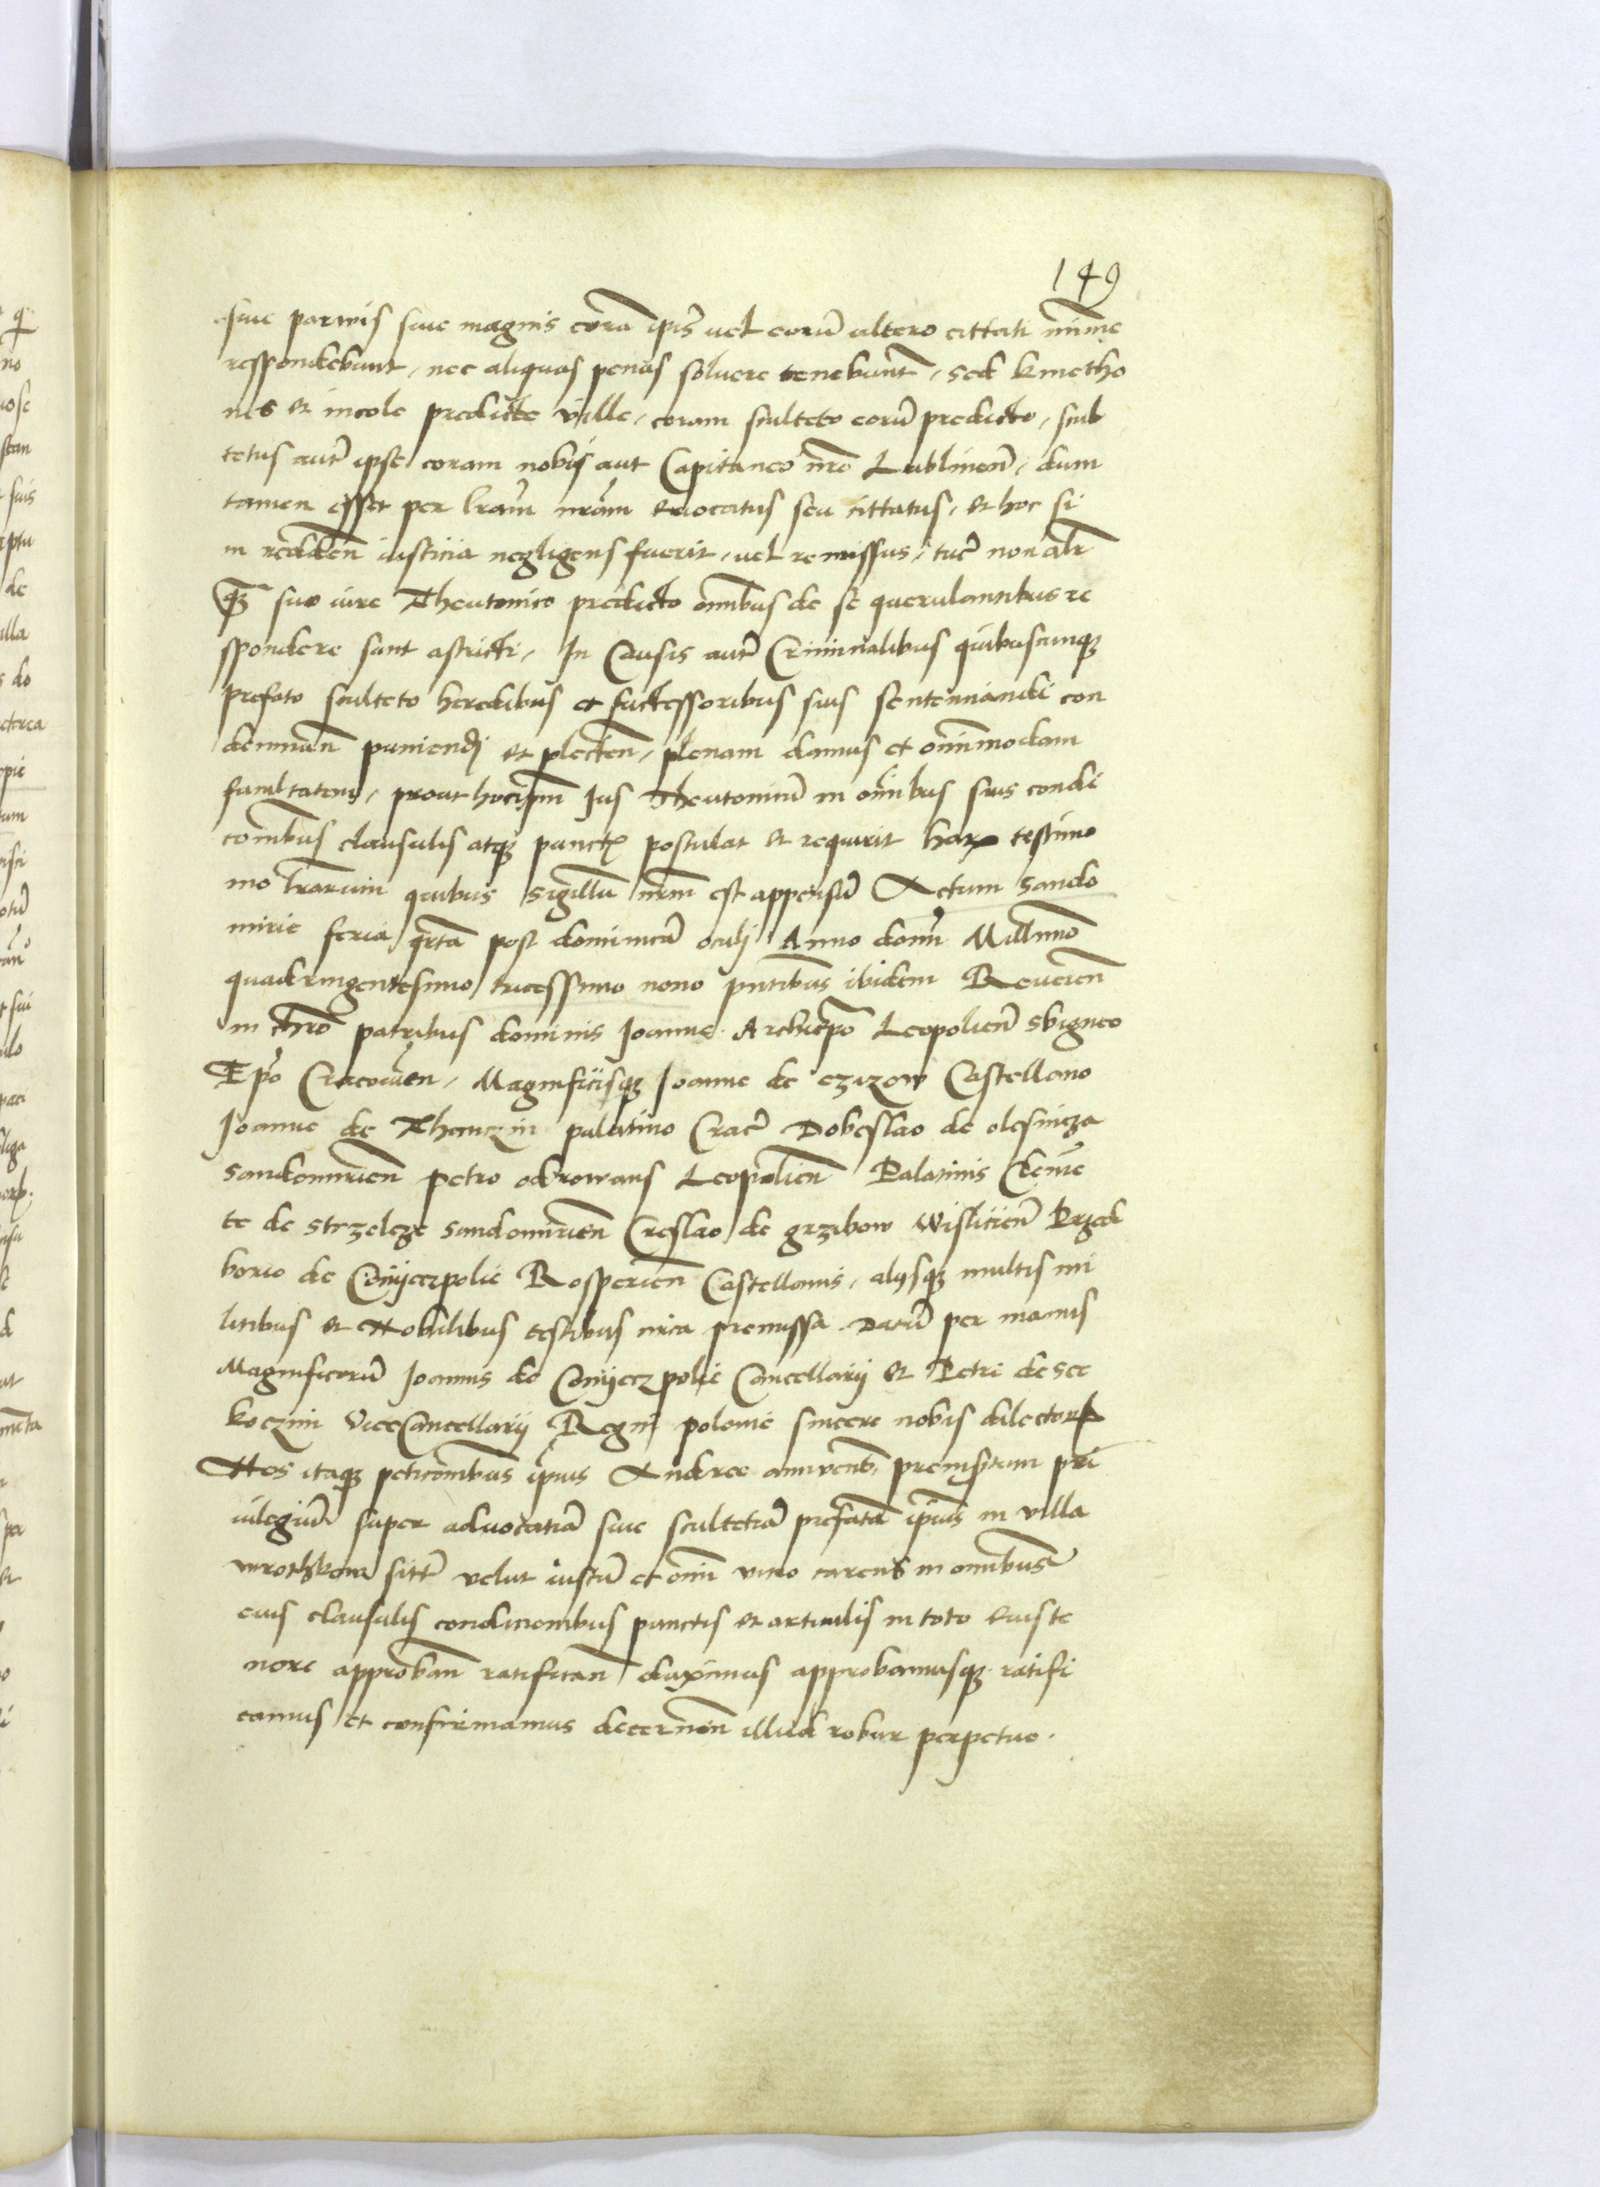 149
siue parwis siue magnis corã ipīs uel eorũ altero cittati minime
respondebunt, nec aliquas penas soluere tenebunt̄, sed kmetho
nes et incole predicte ville, coram sculteto eorũ predicto, scul
tetus aut̄ ipse coram nobis aut Capitaneo nr̄o Lublinen̄, dum
tamen esset per lr̄am nr̄am euocatus seu cittatus, et hoc si
in redden̄ iusticia negligens fuerit, uel remissus, tuc̄ non alr̄
q̃ suo iure Theutonico predicto om̄ibus de se querulantibus re
spondere sunt astricti, In Causis aut̄ Criminalibus quibuscunq̨
prefato sculteto heredibus et successoribus suis sentenciandi con
demnan̄ puniendj et plecten̄, plenam damus et omnimodam
facultatem, prout hoc ipm̄ Ius Theutonicũ in om̄ibus suis condi
cōnibus clausulis atq̨ punctis postulat et requirit harx testimo
nio lr̄arum quibus sigillũ nr̄m est appensũ Actum Sando
mirie feria qr̄ta post dominicã oculj Anno domī Millīmo
quadringentesimo tricessimo nono pn̄tibus ibidem Reueren̄
in chr̄o patribus dominis Joanne Archiepō Leopolien̄ Sbigneo
Ep̄o Cracouien, Magnificisq̨ Joanne de czizow Castellano
Joanne de Thenczin palatino Crac̄ Dobeslao de olesnicza
Sandomirien̄ petro odrowans Leopolien̄ Palatinis Cleme
te de strzelcze Sandomirien̄ Creslao de grzibow Wislicien̄ Przed
borio de Conyeczpolie Rosperien̄ Castellanis, alysq̨ multis mi
litibus et Nobilibus testibus circa premissa. Datũ per manus
Magnificorũ Joannis de Conyeczpolie Cancellarij et Petri de sce
koczin ViceCancellarij Regni polonie sincere nobis dilectorx
Nos itaq̨ peticōnibus ip̄ius Andree annuen̄, preinsertum pri
uilegiũ super aduocatiã siue scultetiã prefatã ip̄ius in villa
wrothkow sitt̄ velut iustũ et om̄i vicio carens in omnibus
eius clausulis condicionibus punctis et articulis in toto eius te
nore approban̄ ratifican̄ duximus approbamusq̨ ratifi
camus et confirmamus decernen̄ illud robur perpetue.